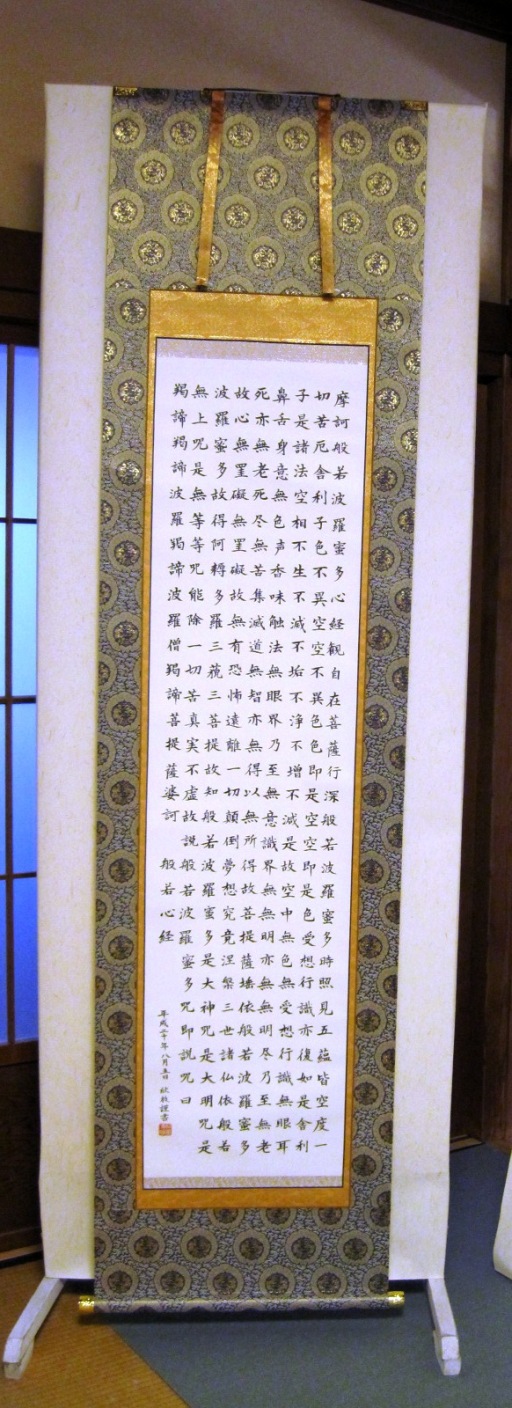 摩訶般若波羅蜜多心経観自在菩薩行深般若波羅蜜多時照見五蘊皆空度一
切苦厄舎利子色不異空空不異色色即是空空即是色受想行識亦復如是舎利
子是諸法空相不生不滅不垢不浄不増不減是故空中無色無受想行識無眼耳
鼻舌身意無色声香味触法無眼界乃至無意識界無無明亦無無明尽乃至無老
死亦無老死尽無苦集滅道無智亦無得以無所得故菩提薩埵依般若波羅蜜多
故心無罣礙無罣礙故無有恐怖遠離一切顛倒夢想究竟涅槃三世諸仏依般若
波羅蜜多故得阿耨多羅三藐三菩提故知般若波羅蜜多是大神呪是大明呪是
無上呪是無等等呪能除一切苦真実不虚故説般若波羅蜜多呪即説呪曰
羯諦羯諦波羅羯諦波羅僧羯諦菩提薩婆訶 般若心経
平成二十年八月五日 謹書